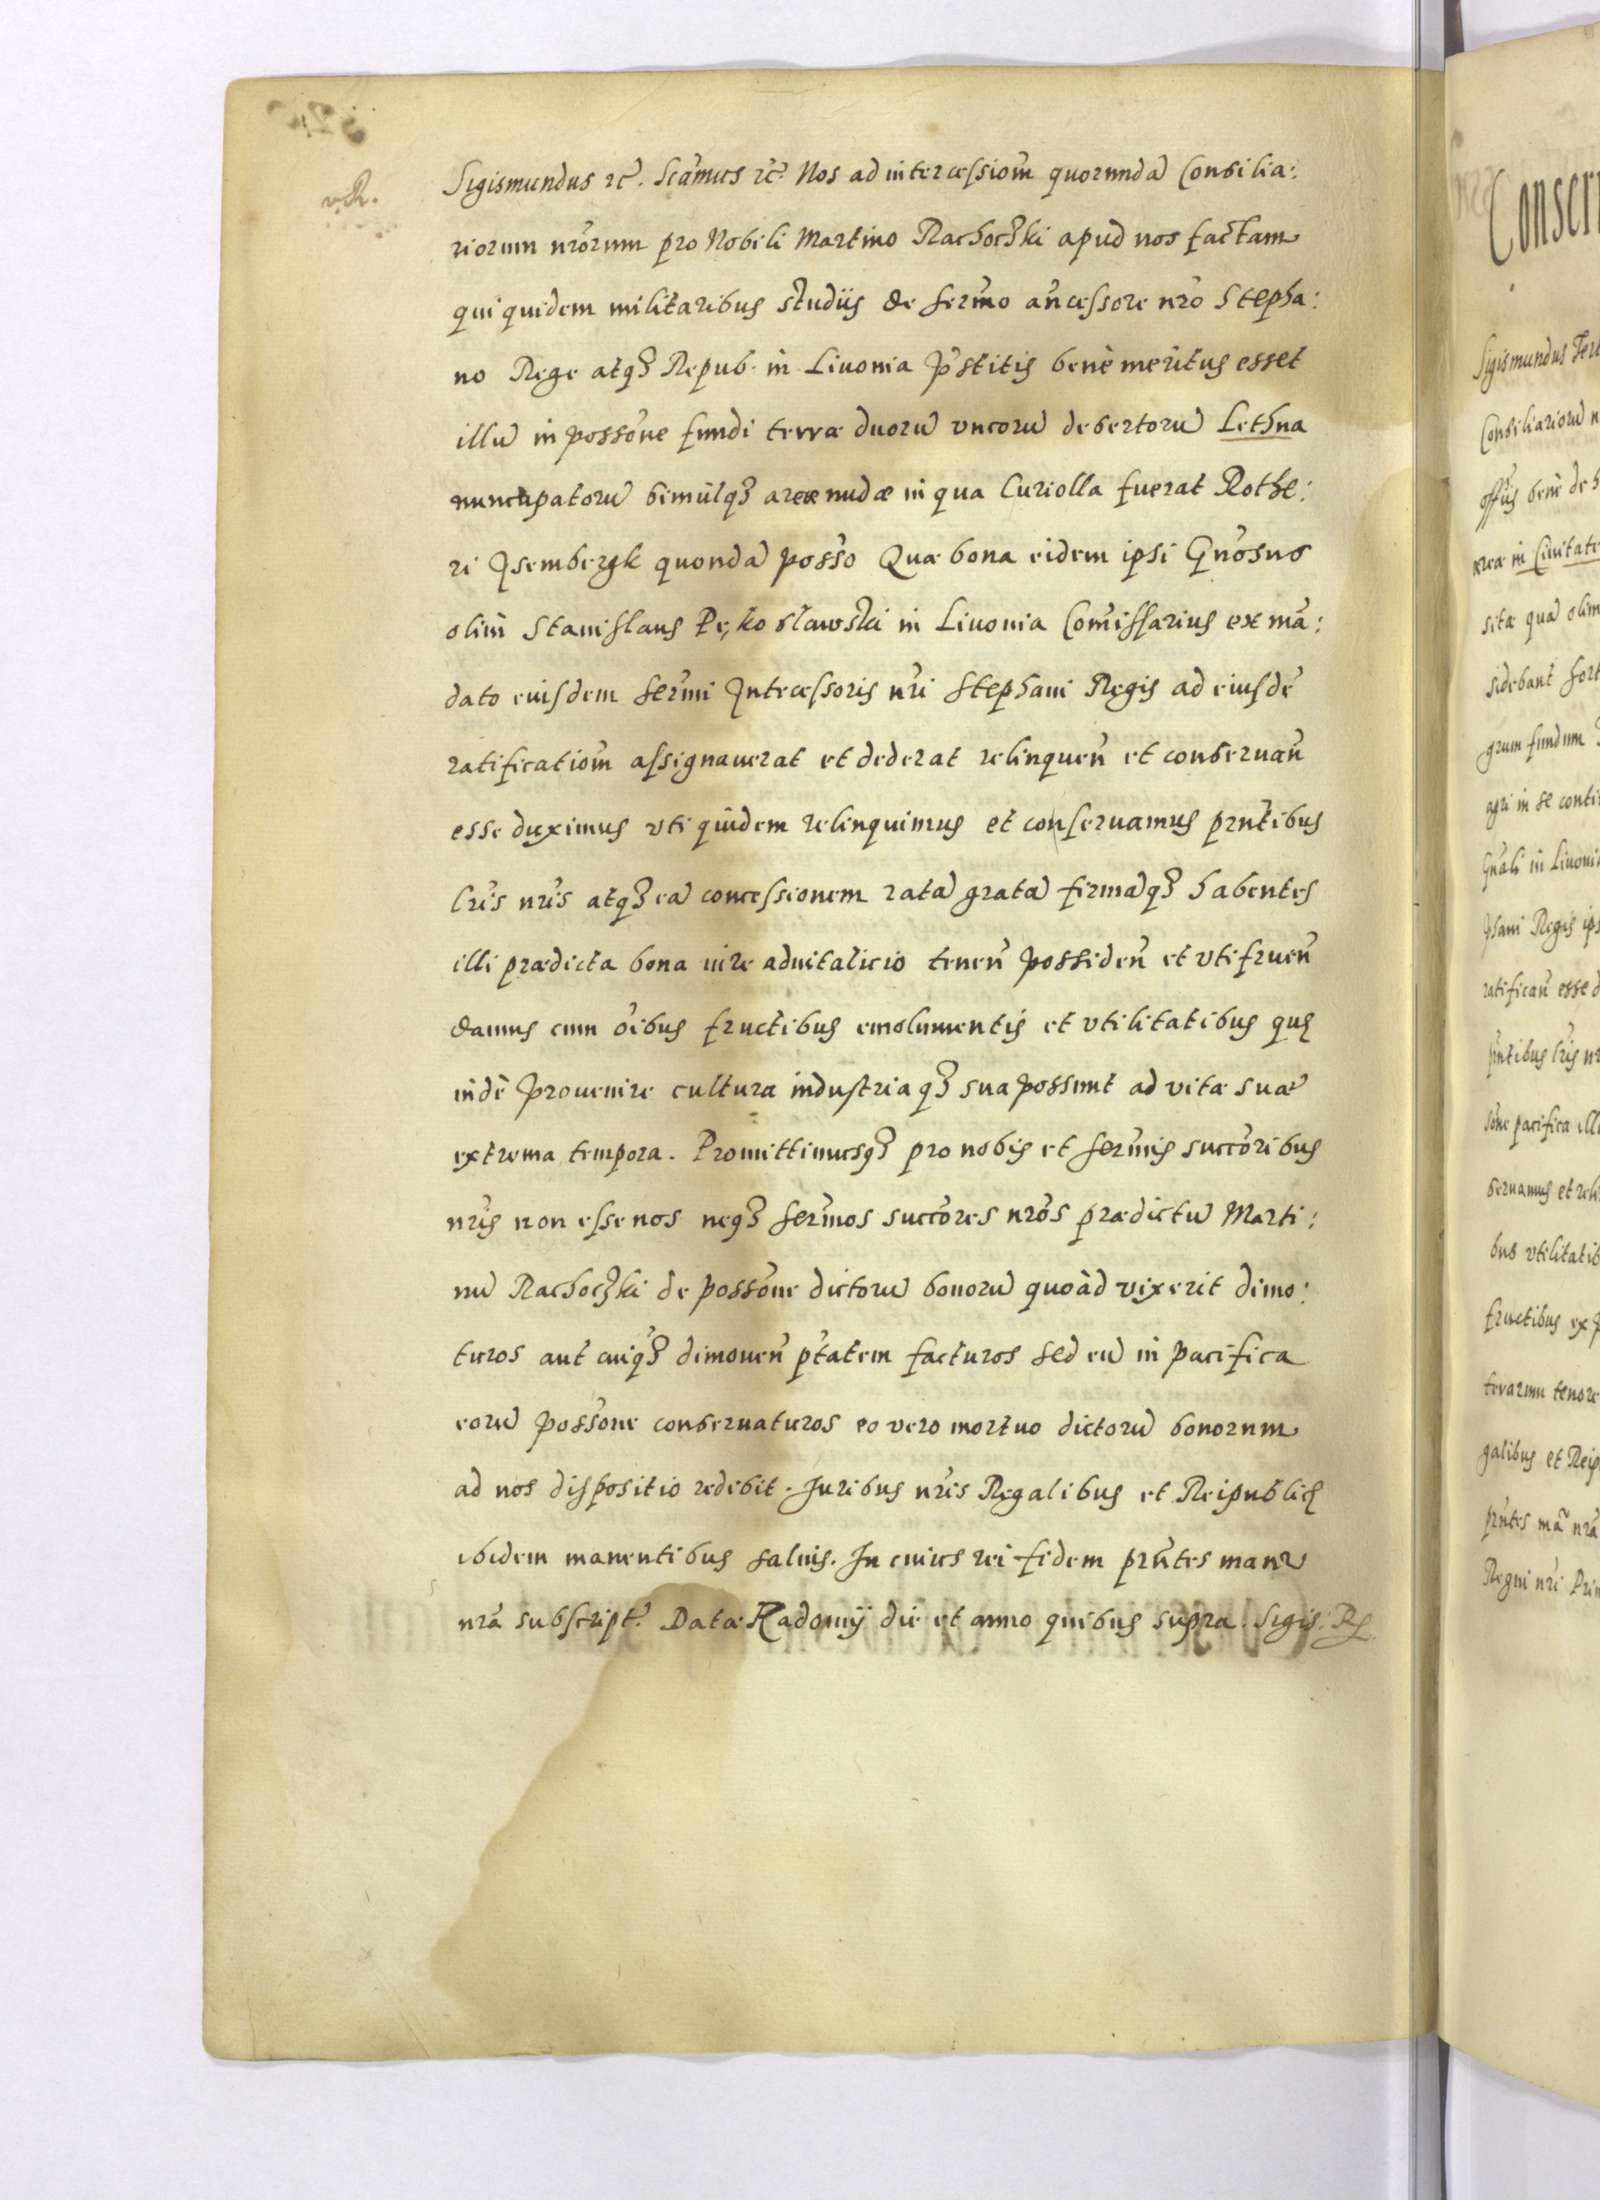 Sigismundus rc̃. Scãmus rc̃. Nos ad intercessiom̃ quorundã Consilia:
riorum nrõrum pro Nobili Martino Rachoczki apud nos factam
qui quidem militaribus studiis de serm̃o añcessore nrõ Stepha:
no Rege atq3 Repub. in Liuonia p̃stitis benè meritus esset
illũ in possõne fundi terræ duorũ vncorũ desertorũ Lethna
nuncupatorũ simulq3 areæ nudæ in qua Curiolla fuerat Rothe:
ri Jsembergk quondã possõ Quæ bona eidem ipsi Gnõsus
olim Stanislaus Pękoslawski in Liuonia Com̃issarius ex mã:
dato eiusdem serm̃i Intecessoris nrĩ Stephani Regis ad eiusdẽ
ratificatiom̃ assignauerat et dederat relinqueñ et conseruañ
esse duximus vti quidem relinquimus et conseruamus prñtibus
lrĩs nrĩs atq3 eã concessionem ratã gratã firmãq3 habentes
illi prædicta bona iure aduitalicio teneñ possideñ et vtifrueñ
damus cum oĩbus fructibus emolumentis et vtilitatibus quę
indè prouenire cultura industriaq3 sua possunt ad vitæ suæ
extrema tempora. Promittimusq3 pro nobis et serm̃is succõribus
nrĩs non esse nos neq3 serm̃os succõres nrõs prædictũ Marti:
nũ Rachoczki de possõne dictorũ bonorũ quoàd vixerit dimo:
turos aut cuiq3 dimoueñ p̃tatem facturos sed eũ in pacifica
eorũ possõne conseruaturos eo vero mortuo dictorũ bonorum
ad nos dispositio redibit. Juribus nrĩs Regalibus et Reipublicę
ibidem manentibus saluis. In cuius rei fidem prñtes manu
nrã subscript̃. Datæ Radomij die et anno quibus supra. Sigis: Rx
Conser
Sigismundus Tert
Consiliariorũ n
offĩs benè de
areæ in Ciuitate
sitæ quã olim
sidebant fort
grum fundum
agri in se conti
Gnãli in Liuoni
phani Regis ips
ratificañ esse d
prñtibus lrĩs nr
sõne pacifica ill
seruamus et reli
bus vtilitatib
fructibus ex p
terarum tenore
galibus et Reip
prñtes mã nrã
Regni nrĩ Prim